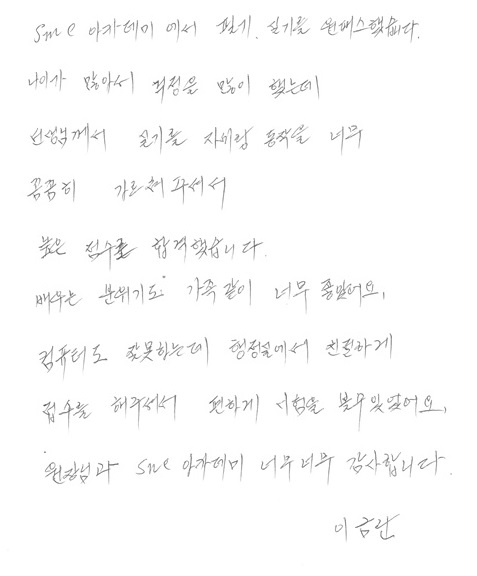 SMC 아카데미 에서 필기, 실기를 원패스했습니다.
나이가 많아서 걱정을 많이 했는데
선생님께서 실기를 자세랑 동작을 너무
꼼꼼히 가르쳐주셔서
높은 점수로 합격했습니다.
배우는 분위기도 가족같이 너무 좋았어요,
컴퓨터도 잘못하는데 행정실에서 친절하게
접수를 해주셔서 편하게 시험을 볼수있었어요,
원장님과 SMC 아카데미 너무너무 감사합니다.
이금란